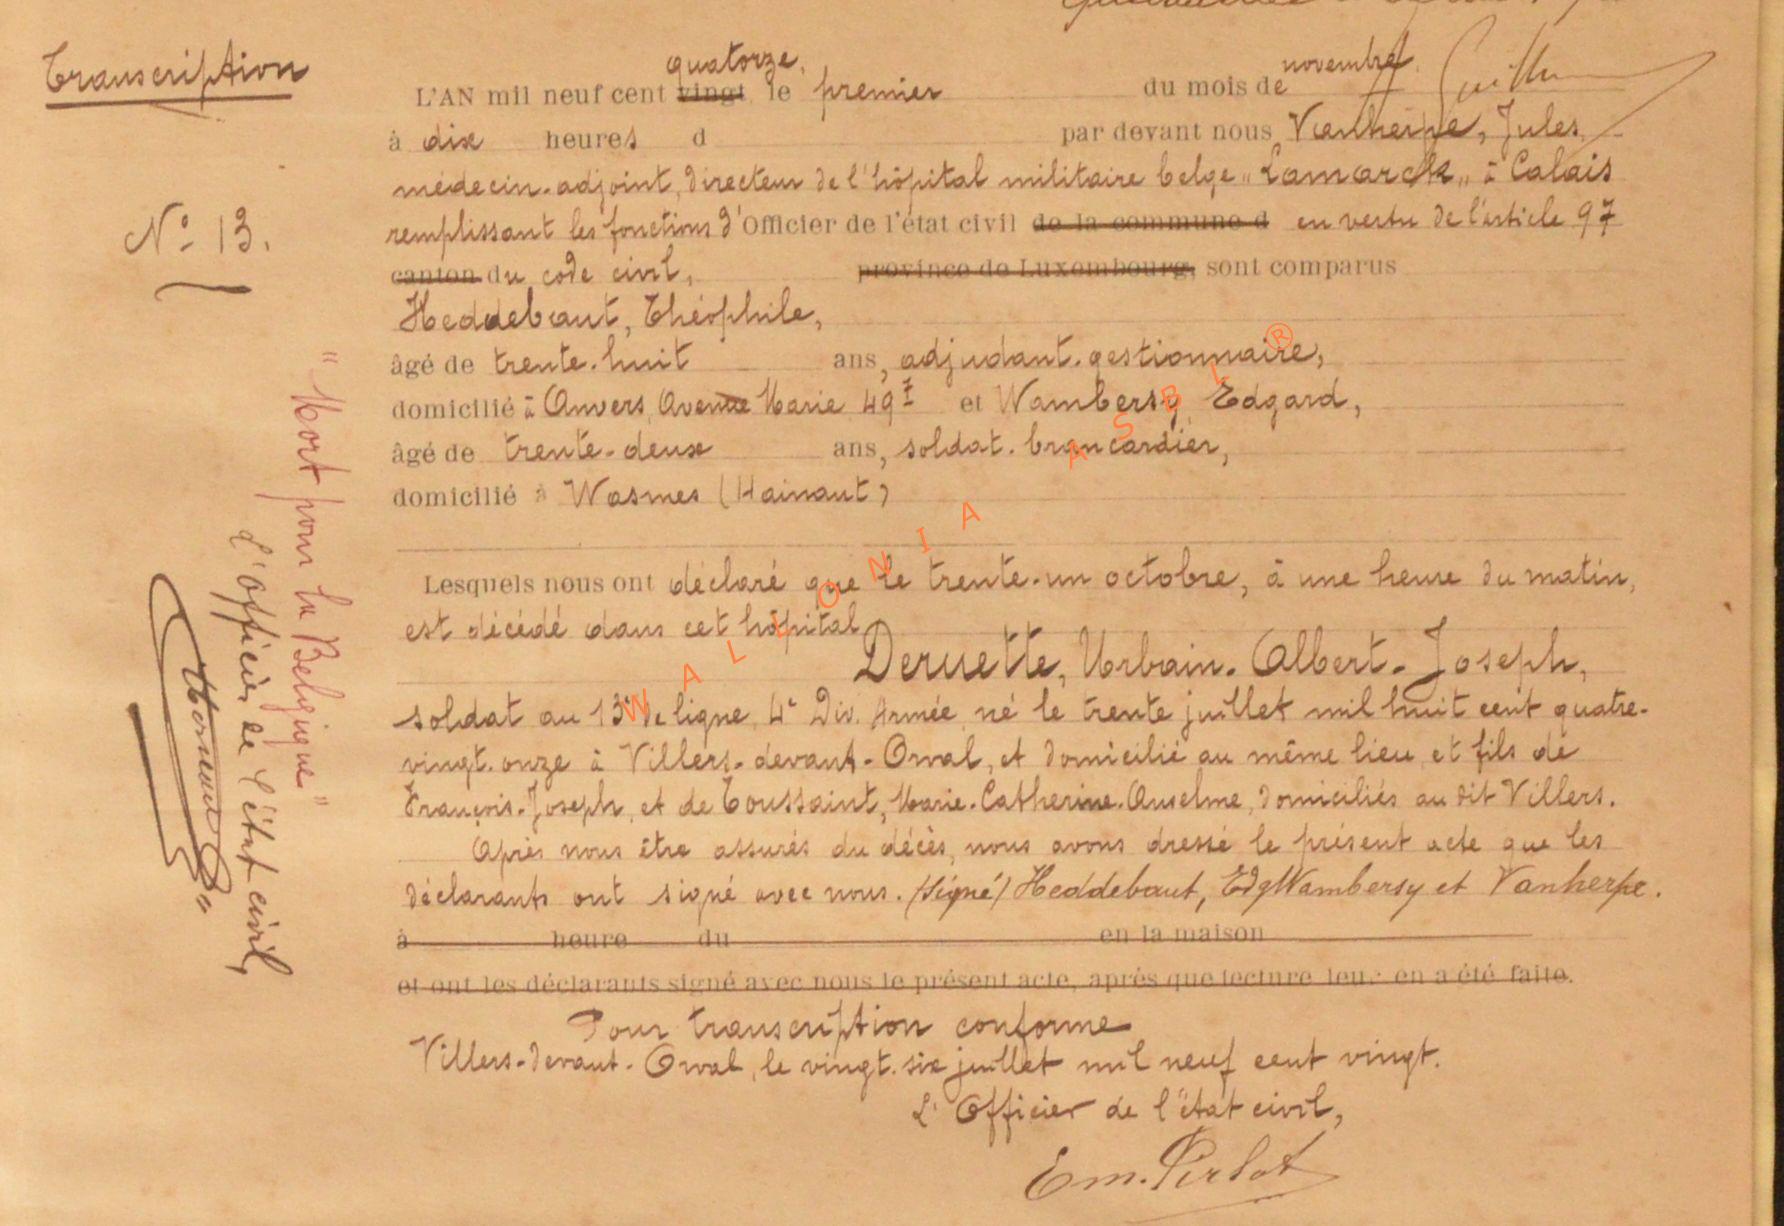 Transcription
N° 13.
"Mort pour la Belgique"
L'officier de l'état civil,
quatorze. novembre
L'AN mil neuf cent vingt le premier du mois de
à dix heures d par devant nous Vanherpe, Jules
médecin-adjoint, directeur de l'hôpital militaire belge "Lamarck" à Calais
remplissant les fonctions d'Officier de l'état civil de la commune d en vertu de l'article 97
canton du code civil, province de Luxembourg, sont comparus
Heddebaut, Théophile,
âgé de trente-huit ans, adjudant-gestionnaire,
domicilié à Anvers, Avenue Marie 49 et Wambersy Edgard,
âgé de trente-deux ans, soldat-brancardier,
domicilié à Wasmes (Hainaut)
Lesquels nous ont déclaré que le trente-un octobre, à une heure du matin,
est décédé dans cet hôpital
Deruette, Urbain-Albert-Joseph,
soldat au 13e de ligne, 4e Div. Armée, né le trente juillet mil huit cent quatre-
vingt-onze à Villers-devant-Orval, et domicilié au même lieu, et fils de
François-Joseph, et de Toussaint, Marie-Catherine-Anselme, domiciliés au dit Villers.
Après nous être assurés du décès, nous avons dressé le présent acte que les
déclarants ont signé avec nous. (signé) Heddebaut, EdgWambersy et Vanherpe.
à heure du en la maison
et ont les déclarants signé avec nous le présent acte, après que lecture leur en a été faite.
Pour transcription conforme
Villers-devant-Orval, le vingt-six juillet mil neuf cent vingt.
L'Officier de l'état civil,
Em. Pirlot
WALLONIA ASBL ®